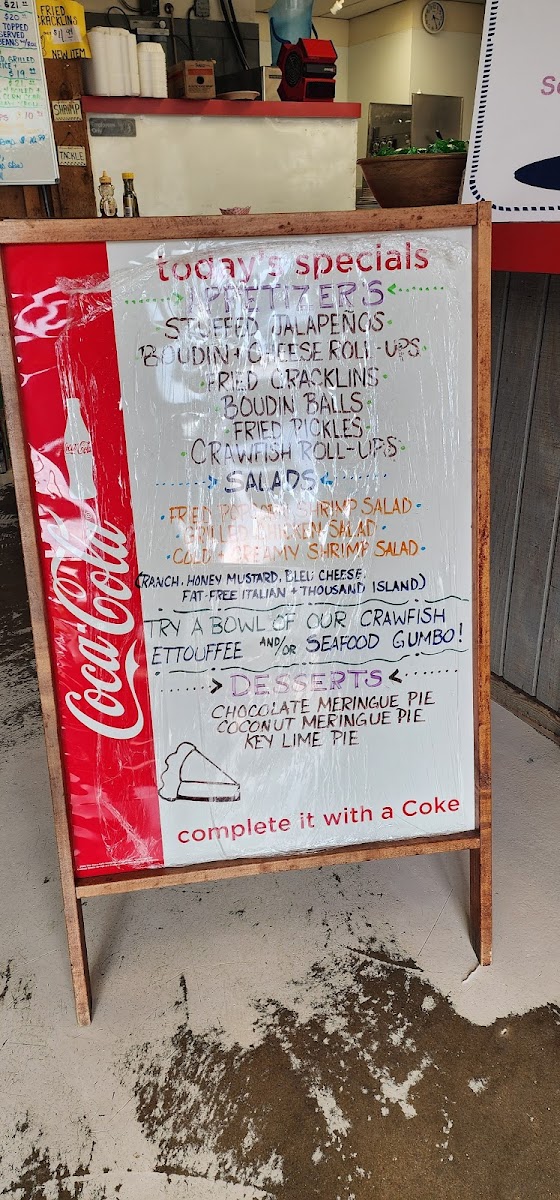 $21
$20
TOPPED
SERVED
FRIED
CRACKLINS
NEW ITEM
GRILLED
$19
SHRIMP
TACKLE
today's specials
APPETIZERS
STUFFED JALAPEÑOS
BOUDIN + CHEESE ROLL-UPS
FRIED CRACKLINS
BOUDIN BALLS
FRIED PICKLES
CRAWFISH ROLL-UPS
SALADS
FRIED POPCORN SHRIMP SALAD
GRILLED CHICKEN SALAD
COLD CREAMY SHRIMP SALAD
(RANCH, HONEY MUSTARD, BLEU CHEESE,
FAT-FREE ITALIAN + THOUSAND ISLAND)
TRY A BOWL OF OUR CRAWFISH
ETTOUFFEE AND/OR SEAFOOD GUMBO!
DESSERTS
CHOCOLATE MERINGUE PIE
COCONUT MERINGUE PIE
KEY LIME PIE
complete it with a Coke
Coca-Cola
Coca-Cola